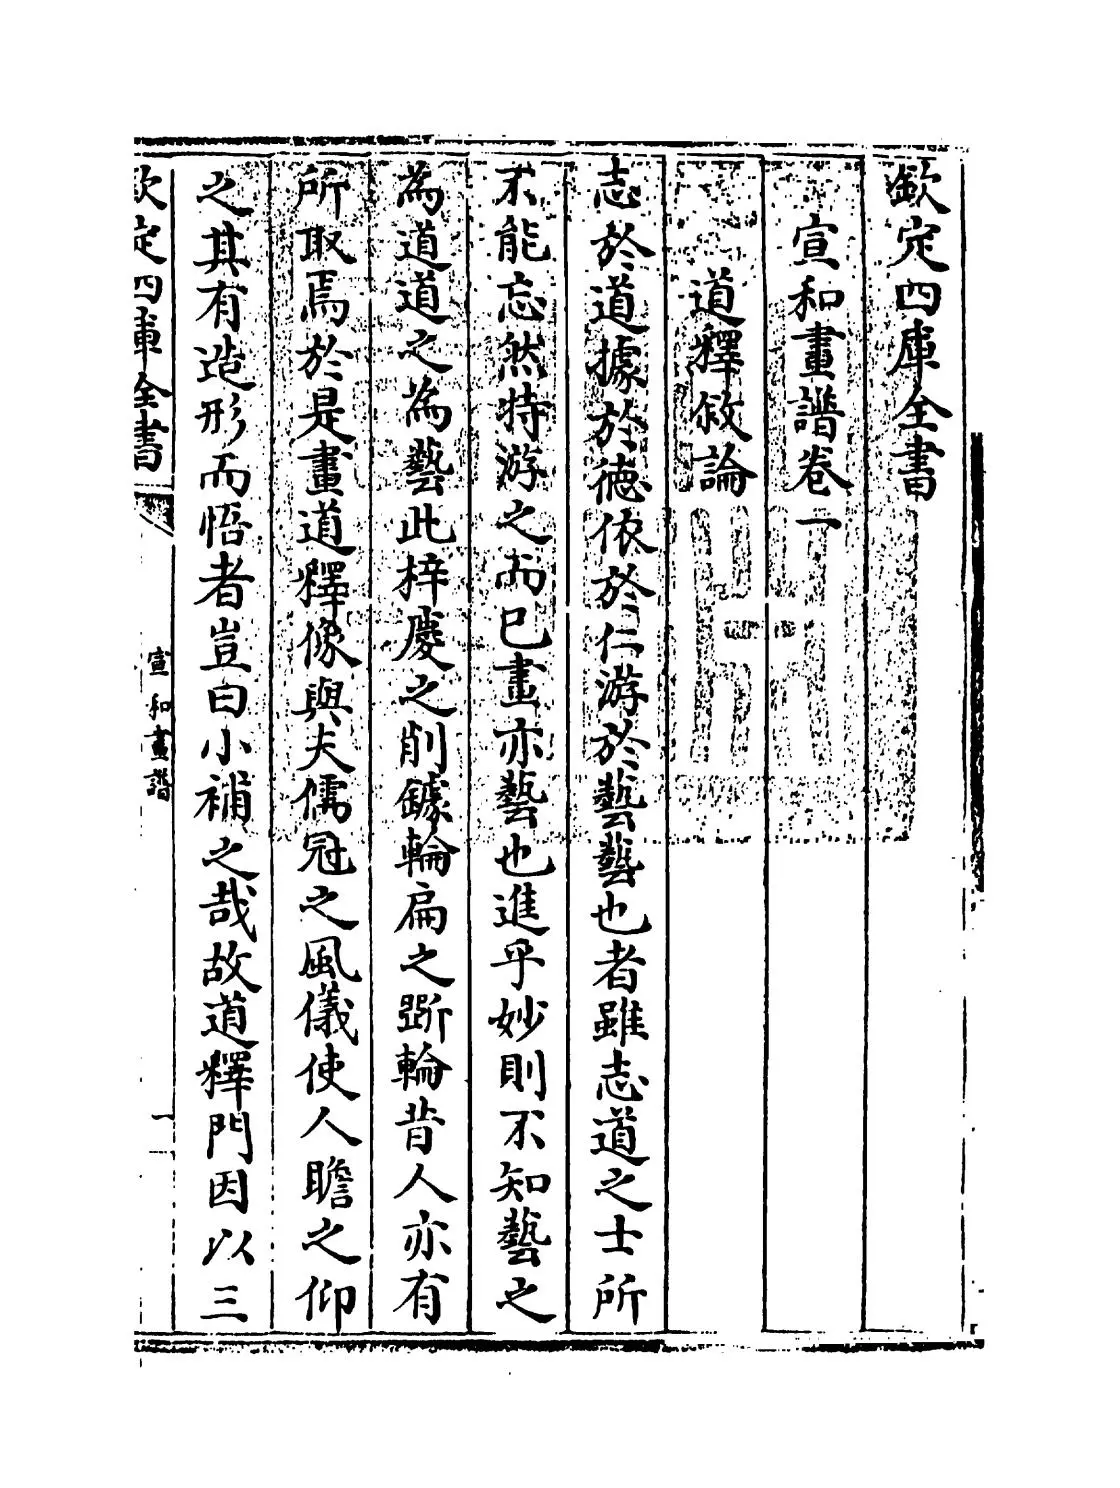 欽定四庫全書
宣和畫譜卷一
道釋敘論
志於道據於德依於仁游於藝藝也者雖志道之士所
不能忘然特游之而已畫亦藝也進乎妙則不知藝之
為道道之為藝此梓慶之削鐻輪扁之斲輪昔人亦有
所取焉於是畫道釋像與夫儒冠之風儀使人瞻之仰
之其有造形而悟者豈曰小補之哉故道釋門因以三
欽定四庫全書
宣和畫譜
一